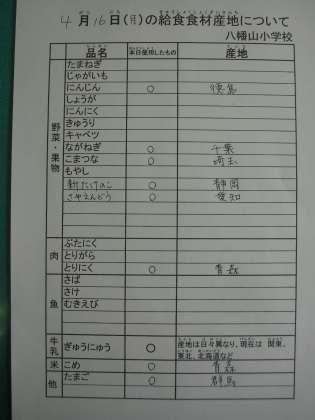 4月16日(月)の給食食材産地について
八幡山小学校
品名 本日使用したもの 産地
野菜・果物
たまねぎ
じゃがいも
にんじん ○ 徳島
しょうが
にんにく
きゅうり
キャベツ
ながねぎ ○ 千葉
こまつな ○ 埼玉
もやし
新たけのこ ○ 静岡
さやえんどう ○ 愛知
肉
ぶたにく
とりがら
とりにく ○ 青森
魚
さば
さけ
むきえび
牛乳 ぎゅうにゅう ○ 産地は日々異なり、現在は 関東、
東北、北海道など
米 こめ ○ 青森
他 たまご ○ 群馬